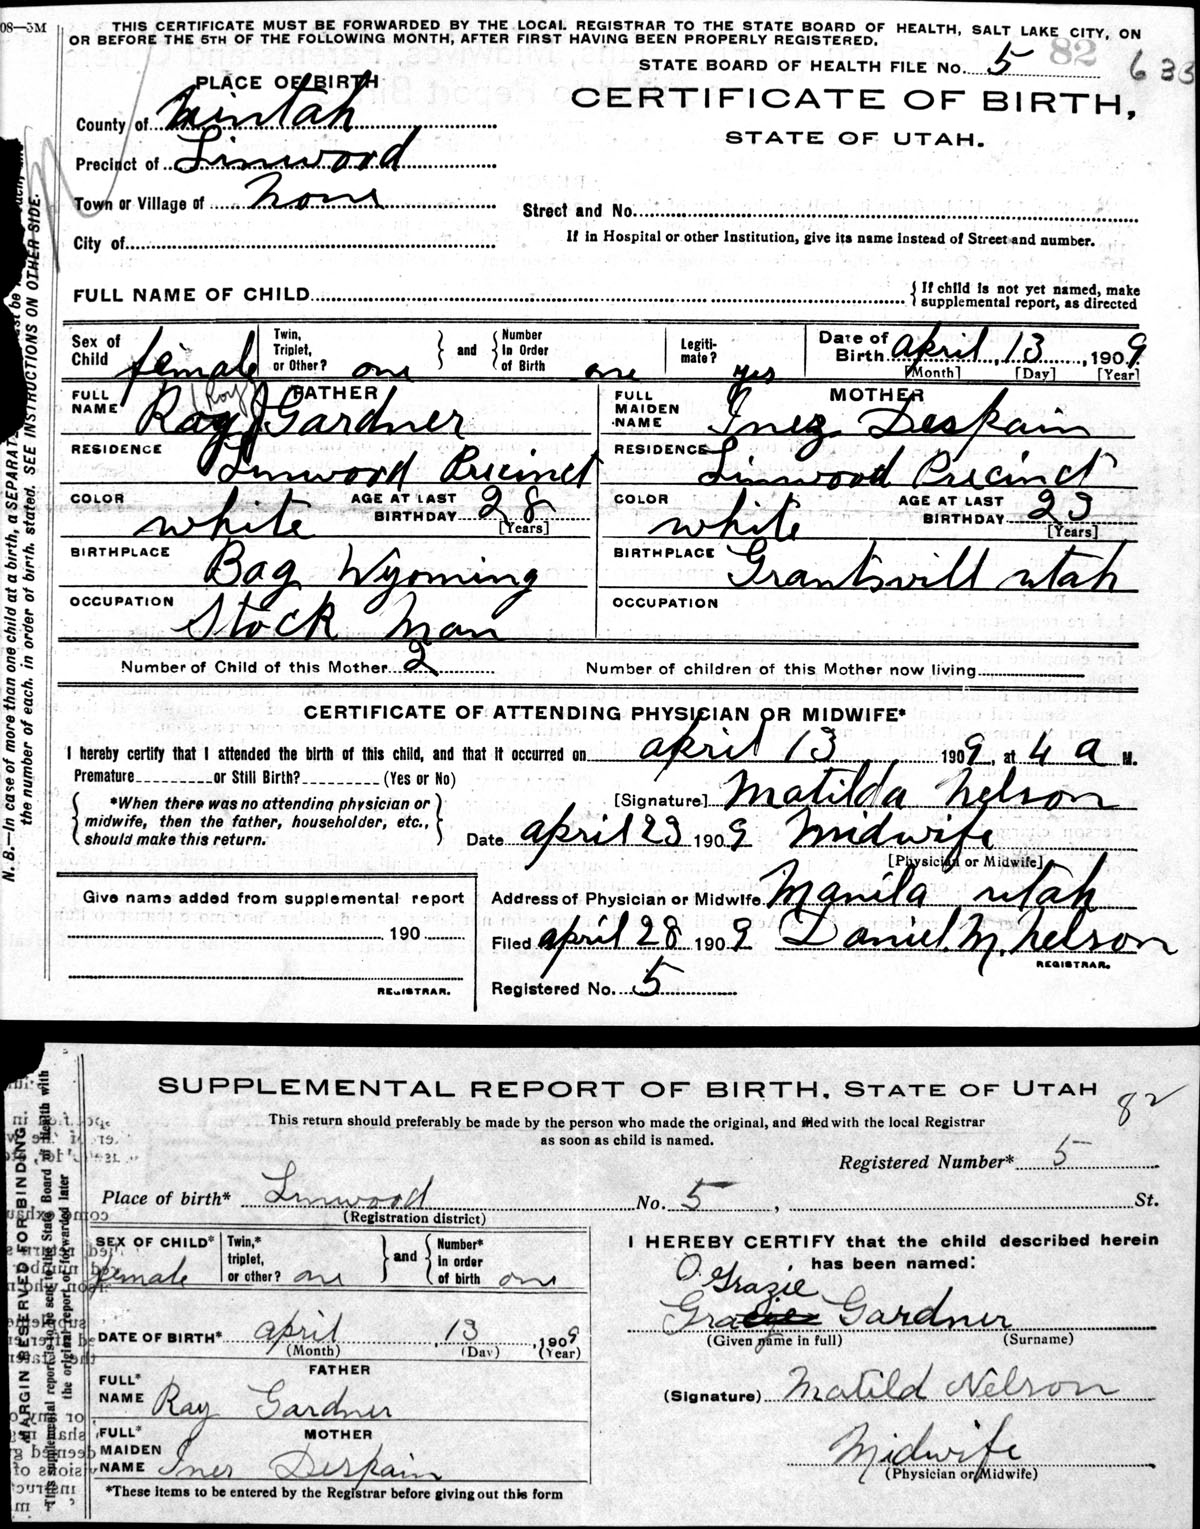 08—5M
THIS CERTIFICATE MUST BE FORWARDED BY THE LOCAL REGISTRAR TO THE STATE BOARD OF HEALTH, SALT LAKE CITY, ON
OR BEFORE THE 5TH OF THE FOLLOWING MONTH, AFTER FIRST HAVING BEEN PROPERLY REGISTERED.
STATE BOARD OF HEALTH FILE No. 5 82 633
PLACE OF BIRTH
CERTIFICATE OF BIRTH,
STATE OF UTAH.
County of Uintah
Precinct of Linwood
Town or Village of None
Street and No.
City of
If in Hospital or other Institution, give its name instead of Street and number.
FULL NAME OF CHILD
{ If child is not yet named, make
supplemental report, as directed
Sex of Child female
Twin, Triplet, or Other? one
and
Number In Order of Birth one
Legiti-mate? yes
Date of Birth april 13, 1909
[Month] [Day] [Year]
FATHER
FULL NAME Ray (Roy) Gardner
RESIDENCE Linwood Precinct
COLOR white
AGE AT LAST BIRTHDAY 28
[Years]
BIRTHPLACE Bag Wyoming
OCCUPATION Stock Man
MOTHER
FULL MAIDEN NAME Inez Despain
RESIDENCE Linwood Precinct
COLOR white
AGE AT LAST BIRTHDAY 23
[Years]
BIRTHPLACE Grantsvill utah
OCCUPATION
Number of Child of this Mother 2
Number of children of this Mother now living
CERTIFICATE OF ATTENDING PHYSICIAN OR MIDWIFE*
I hereby certify that I attended the birth of this child, and that it occurred on april 13 1909, at 4 a M.
Premature or Still Birth? (Yes or No)
{ *When there was no attending physician or
midwife, then the father, householder, etc.,
should make this return. }
[Signature] Matilda Nelson
Date april 23 1909 Midwife
[Physician or Midwife]
Give name added from supplemental report
190
REGISTRAR.
Address of Physician or Midwife Manila utah
Filed april 28 1909 Daniel M. Nelson
REGISTRAR.
Registered No. 5
N. B.—In case of more than one child at a birth, a SEPARATE
the number of each, in order of birth, stated. SEE INSTRUCTIONS ON OTHER SIDE.
SUPPLEMENTAL REPORT OF BIRTH, STATE OF UTAH
82
This return should preferably be made by the person who made the original, and filed with the local Registrar
as soon as child is named.
Registered Number* 5
Place of birth* Linwood No. 5, St.
(Registration district)
SEX OF CHILD* female
Twin,* triplet, or other? one
and
Number* In order of birth one
DATE OF BIRTH* april 13, 1909
(Month) (Day) (Year)
FATHER
FULL* NAME Ray Gardner
MOTHER
FULL* MAIDEN NAME Ines Despain
*These items to be entered by the Registrar before giving out this form
I HEREBY CERTIFY that the child described herein
has been named:
O. Grazie
Gardner
(Given name in full) (Surname)
(Signature) Matild Nelson
Midwife
(Physician or Midwife)
MARGIN RESERVED FOR BINDING
This supplemental report is to be sent to the State Board of Health with
the original report, or forwarded later